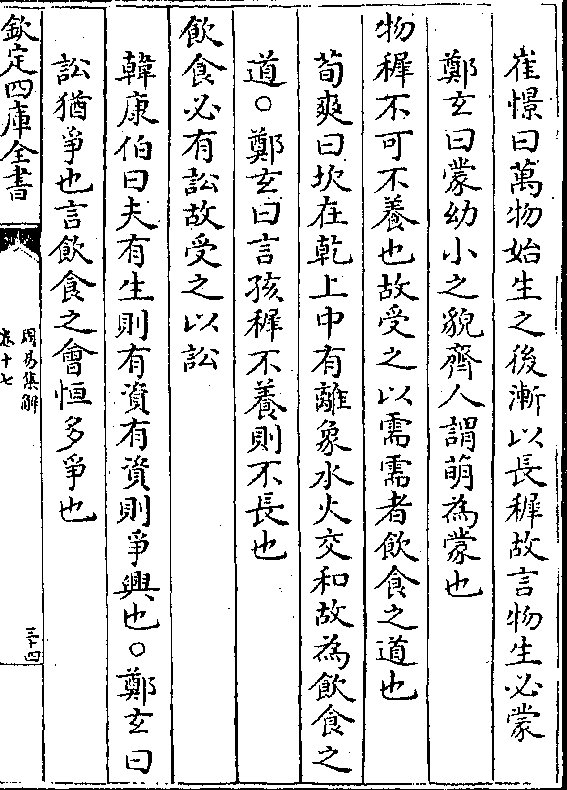 崔憬曰萬物始生之後漸以長穉故言物生必蒙
鄭玄曰蒙幼小之貌齊人謂萌為蒙也
物穉不可不養也故受之以需需者飲食之道也
荀爽曰坎在乾上中有離象水火交和故為飲食之
道○鄭玄曰言孩穉不養則不長也
飲食必有訟故受之以訟
韓康伯曰夫有生則有資有資則爭興也○鄭玄曰
訟猶爭也言飲食之會恒多爭也
欽定四庫全書
周易集解
卷十七
三十四